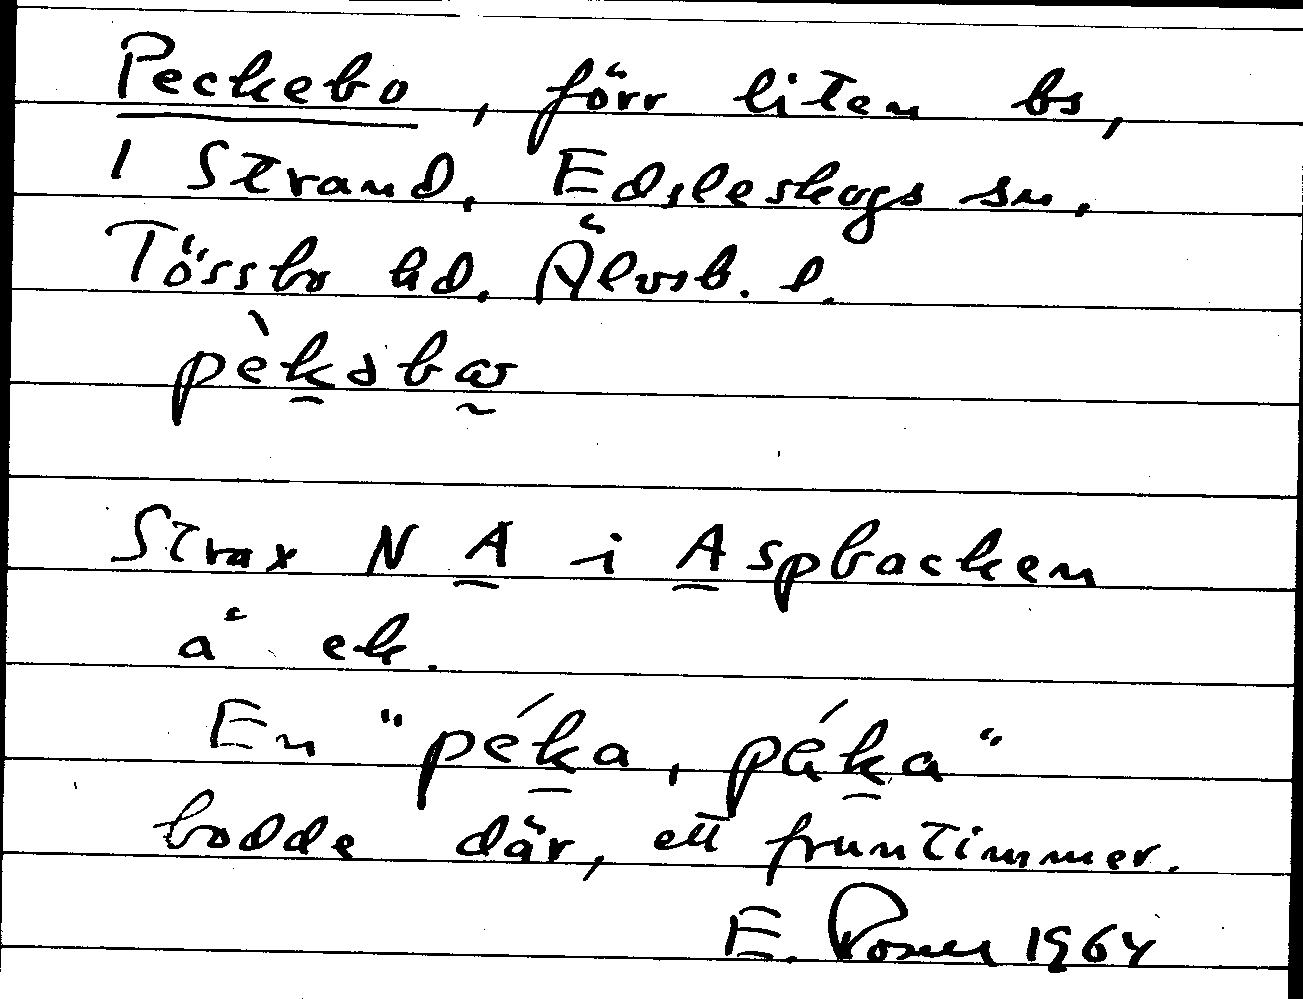 Peckebo, förr liten bs,
1 Strand, Edsleskogs sn,
Tössbo hd. Älvsb. l.
pèkəbω
Strax N A i Aspbacken
å ek.
En "péka, páka"
bodde där, ett fruntimmer.
E. Rosell 1964